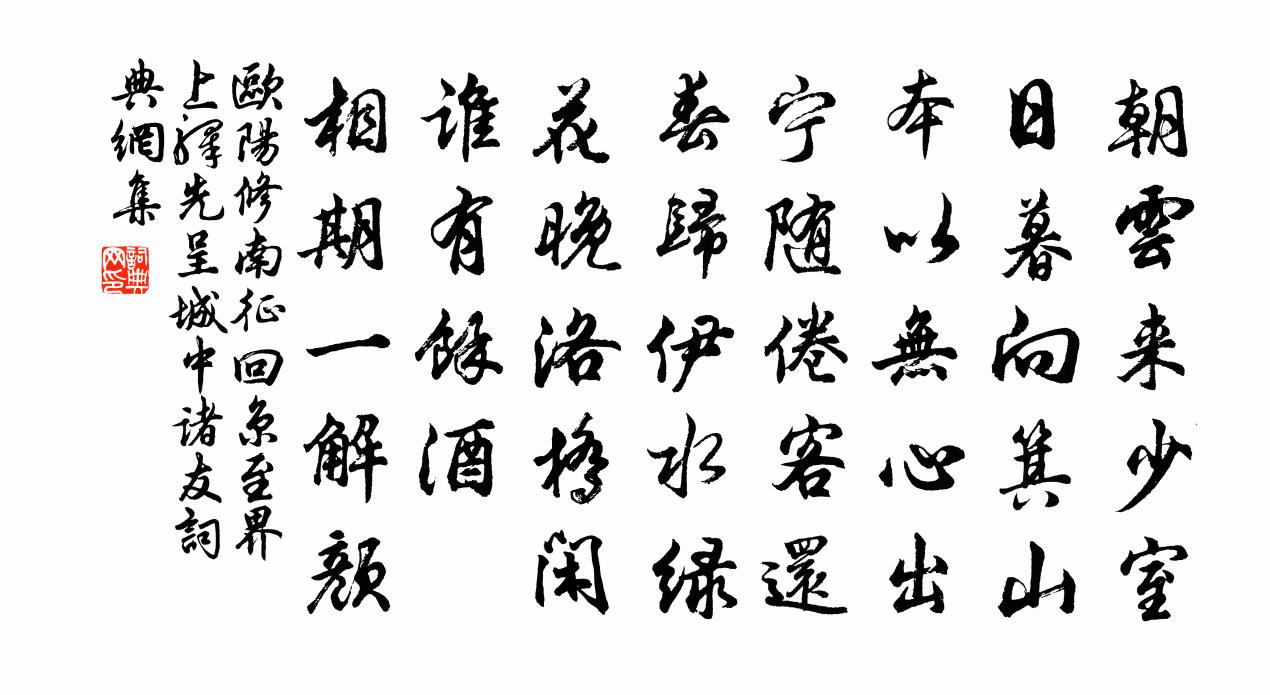 朝雲来少室
日暮向箕山
本以無心出
宁随倦客還
春歸伊水绿
花晚洛橋闲
谁有餘酒
相期一解颜
歐陽修南征回京至界
上驛先呈城中诸友詞
典網集
詞典網印